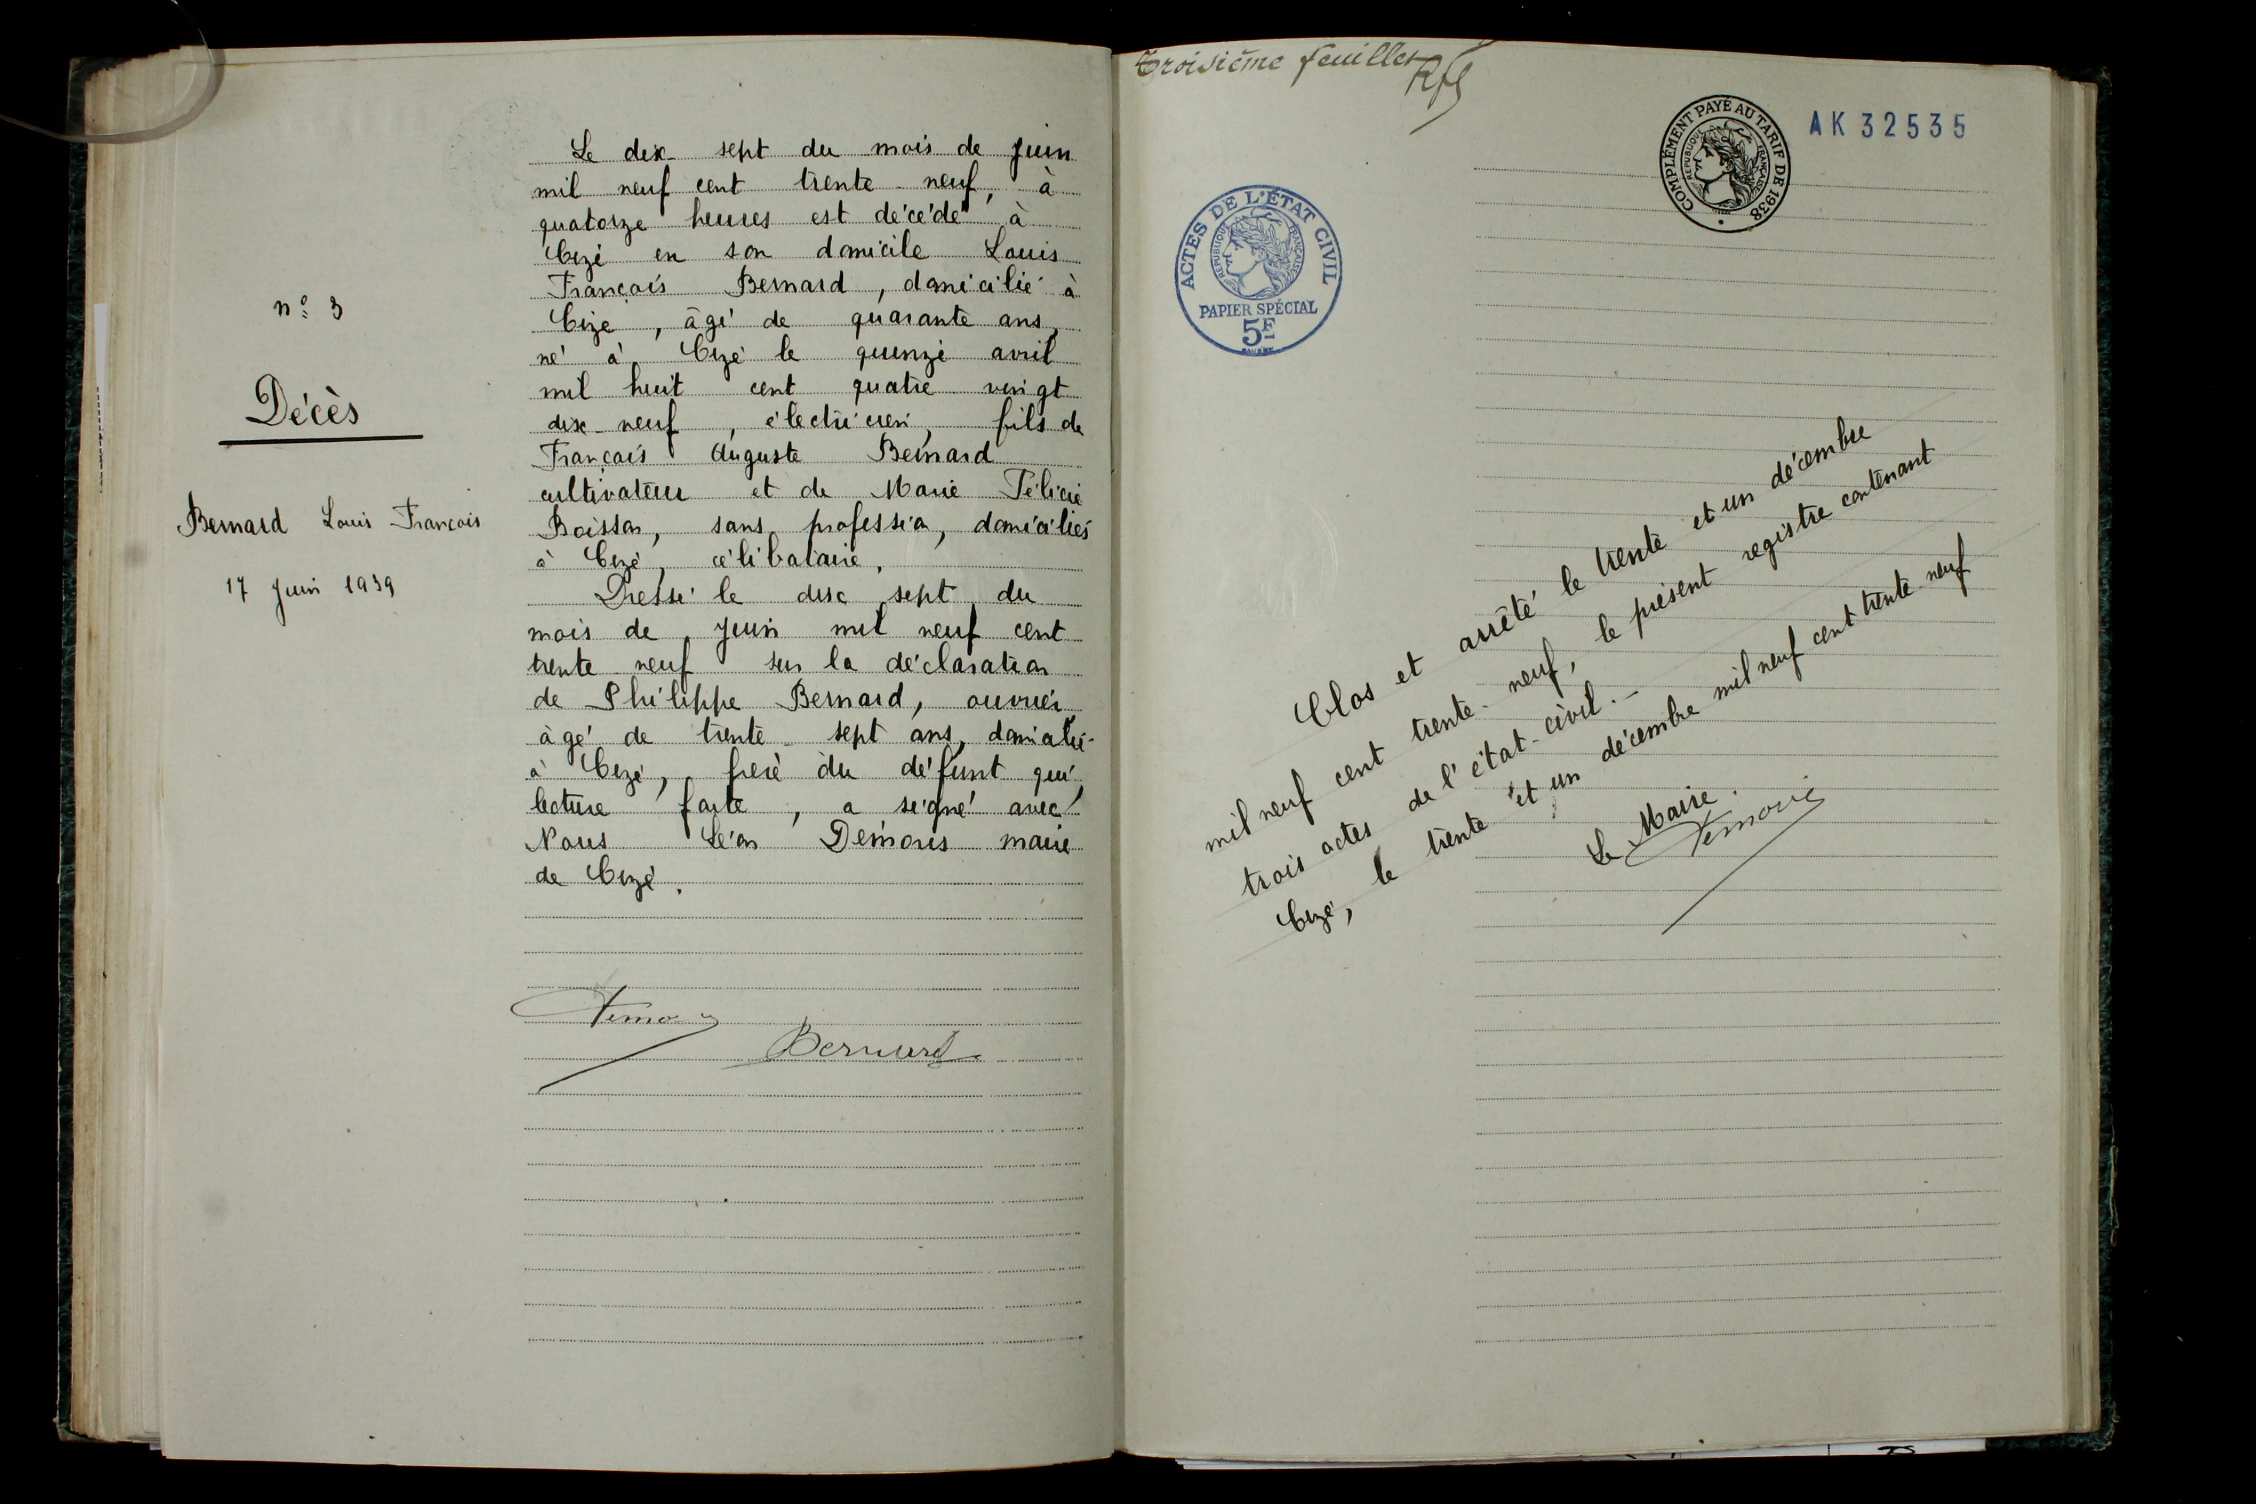 n° 3
Décès
Bernard Louis François
17 Juin 1939
Le dix-sept du mois de Juin
mil neuf cent trente-neuf, à
quatorze heures est décédé à
Cizé en son domicile Louis
François Bernard, domicilié à
Cizé, âgé de quarante ans,
né à Cizé le quinze avril
mil huit cent quatre vingt
dix-neuf, électricien, fils de
François Auguste Bernard
cultivateur et de Marie Félicie
Boisson, sans profession, domiciliés
à Cizé, célibataire.
Dressé le dix sept du
mois de Juin mil neuf cent
trente neuf sur la déclaration
de Philippe Bernard, ouvrier
âgé de trente-sept ans, domicilié
à Cizé, frère du défunt qui,
lecture faite, a signé avec
Nous Léon Démoris maire
de Cizé.
Bernard
Troisième feuillet
COMPLÉMENT PAYÉ AU TARIF DE 1938
RÉPUBLIQUE FRANÇAISE
AK 32535
ACTES DE L'ÉTAT CIVIL
RÉPUBLIQUE FRANÇAISE
PAPIER SPÉCIAL
5F
Clos et arrêté le trente et un décembre
mil neuf cent trente-neuf, le présent registre contenant
trois actes de l'état-civil.-
Cizé, le trente et un décembre mil neuf cent trente-neuf
Le Maire.
Démoris